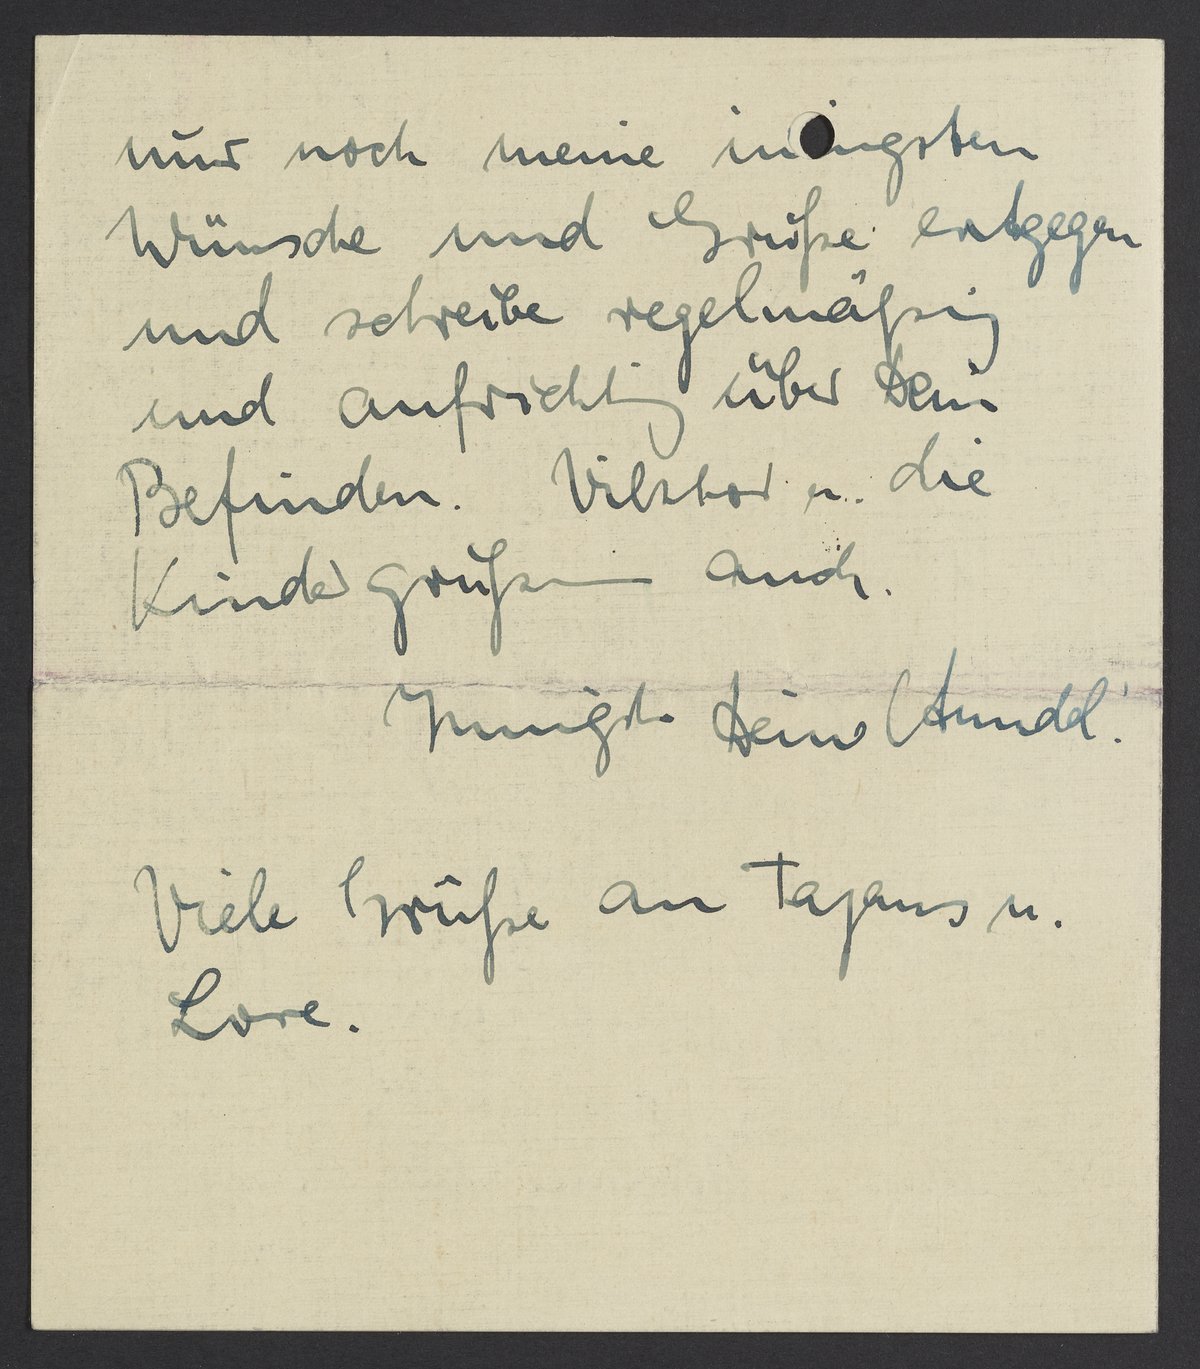 nur noch meine innigsten
Wünsche und Grüße entgegen
und schreibe regelmäßig
und aufrichtig über Dein
Befinden. Viktor u. die
Kinder grüßen auch.
Innigst Deine
Viele Grüße an u.
Lore.